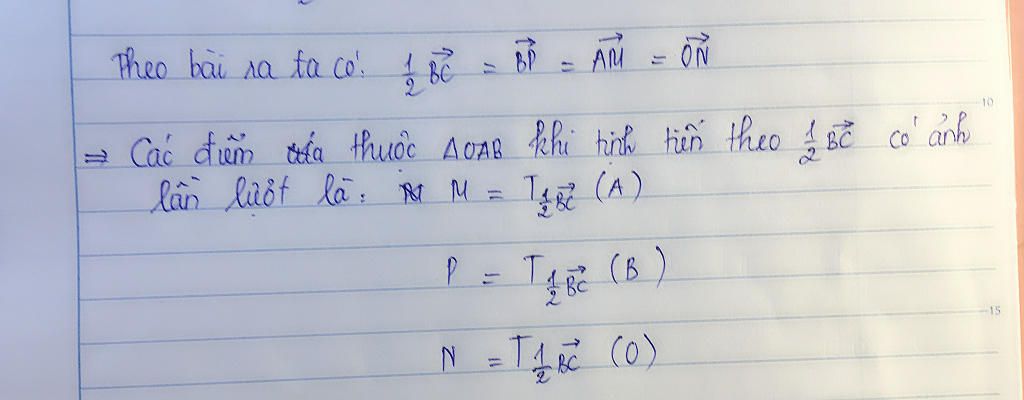 Theo bài ra ta có: 1/2 BC→ = BP→ = AM→ = ON→
10
⇒ Các điểm thuộc ΔOAB khi tịnh tiến theo 1/2 BC→ có ảnh
lần lượt là: M = T_{1/2 BC→} (A)
P = T_{1/2 BC→} (B)
15
N = T_{1/2 BC→} (O)